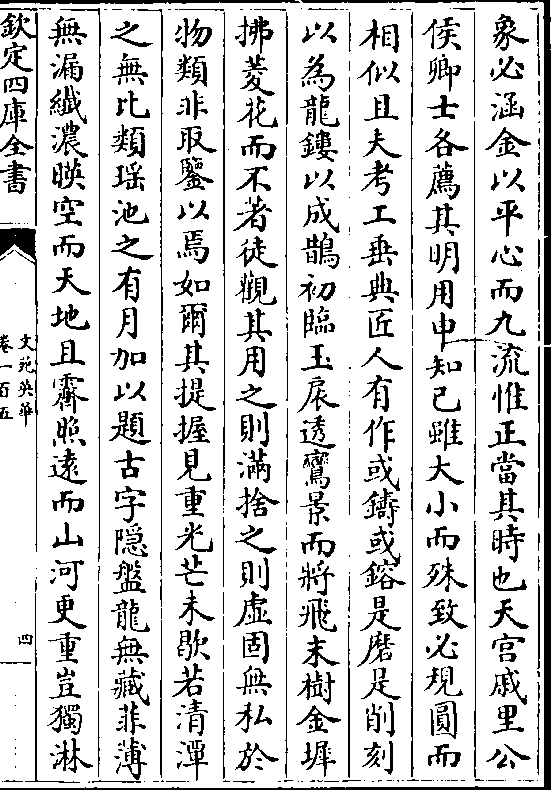 象必涵金以平心而九流惟正當其時也天宫戚里公
侯卿士各薦其明用申知己雖大小而殊致必規圓而
相似且夫考工垂典匠人有作或鑄或鎔是磨是削刻
以為龍鏤以成鵲初臨玉扆透鸞景而將飛末樹金墀
拂菱花而不著徒觀其用之則滿捨之則虛固無私於
物類非取鑒以焉如爾其提握見重光芒未歇若清潭
之無比類瑶池之有月加以題古字隠盤龍無藏菲薄
無漏纖濃暎空而天地且霽照遠而山河更重豈獨淋
欽定四庫全書
文苑英華
卷一百五
四